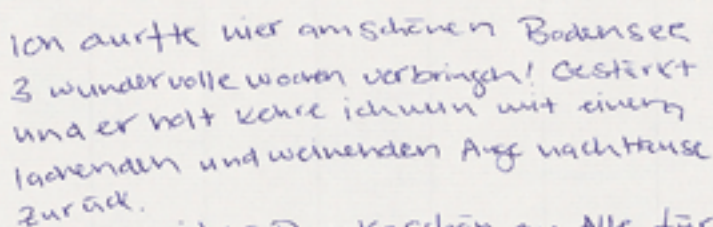 Ich durfte hier am schönen Bodensee
3 wundervolle Wochen verbringen! Gestärkt
und erholt kehre ich nun mit einem
lachenden und weinenden Auge nach Hause
zurück.
Alle für